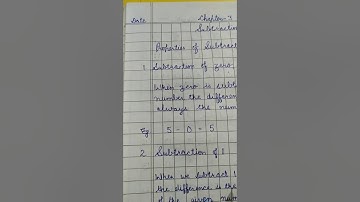 Date Chapter-3
Subtraction
Properties of Subtract
1 Subtraction of zero
When zero is subt
number the differen
always the num
Eg. 5 - 0 = 5
2 Subtraction of 1
When we subtract 1
the difference is the
of the given num